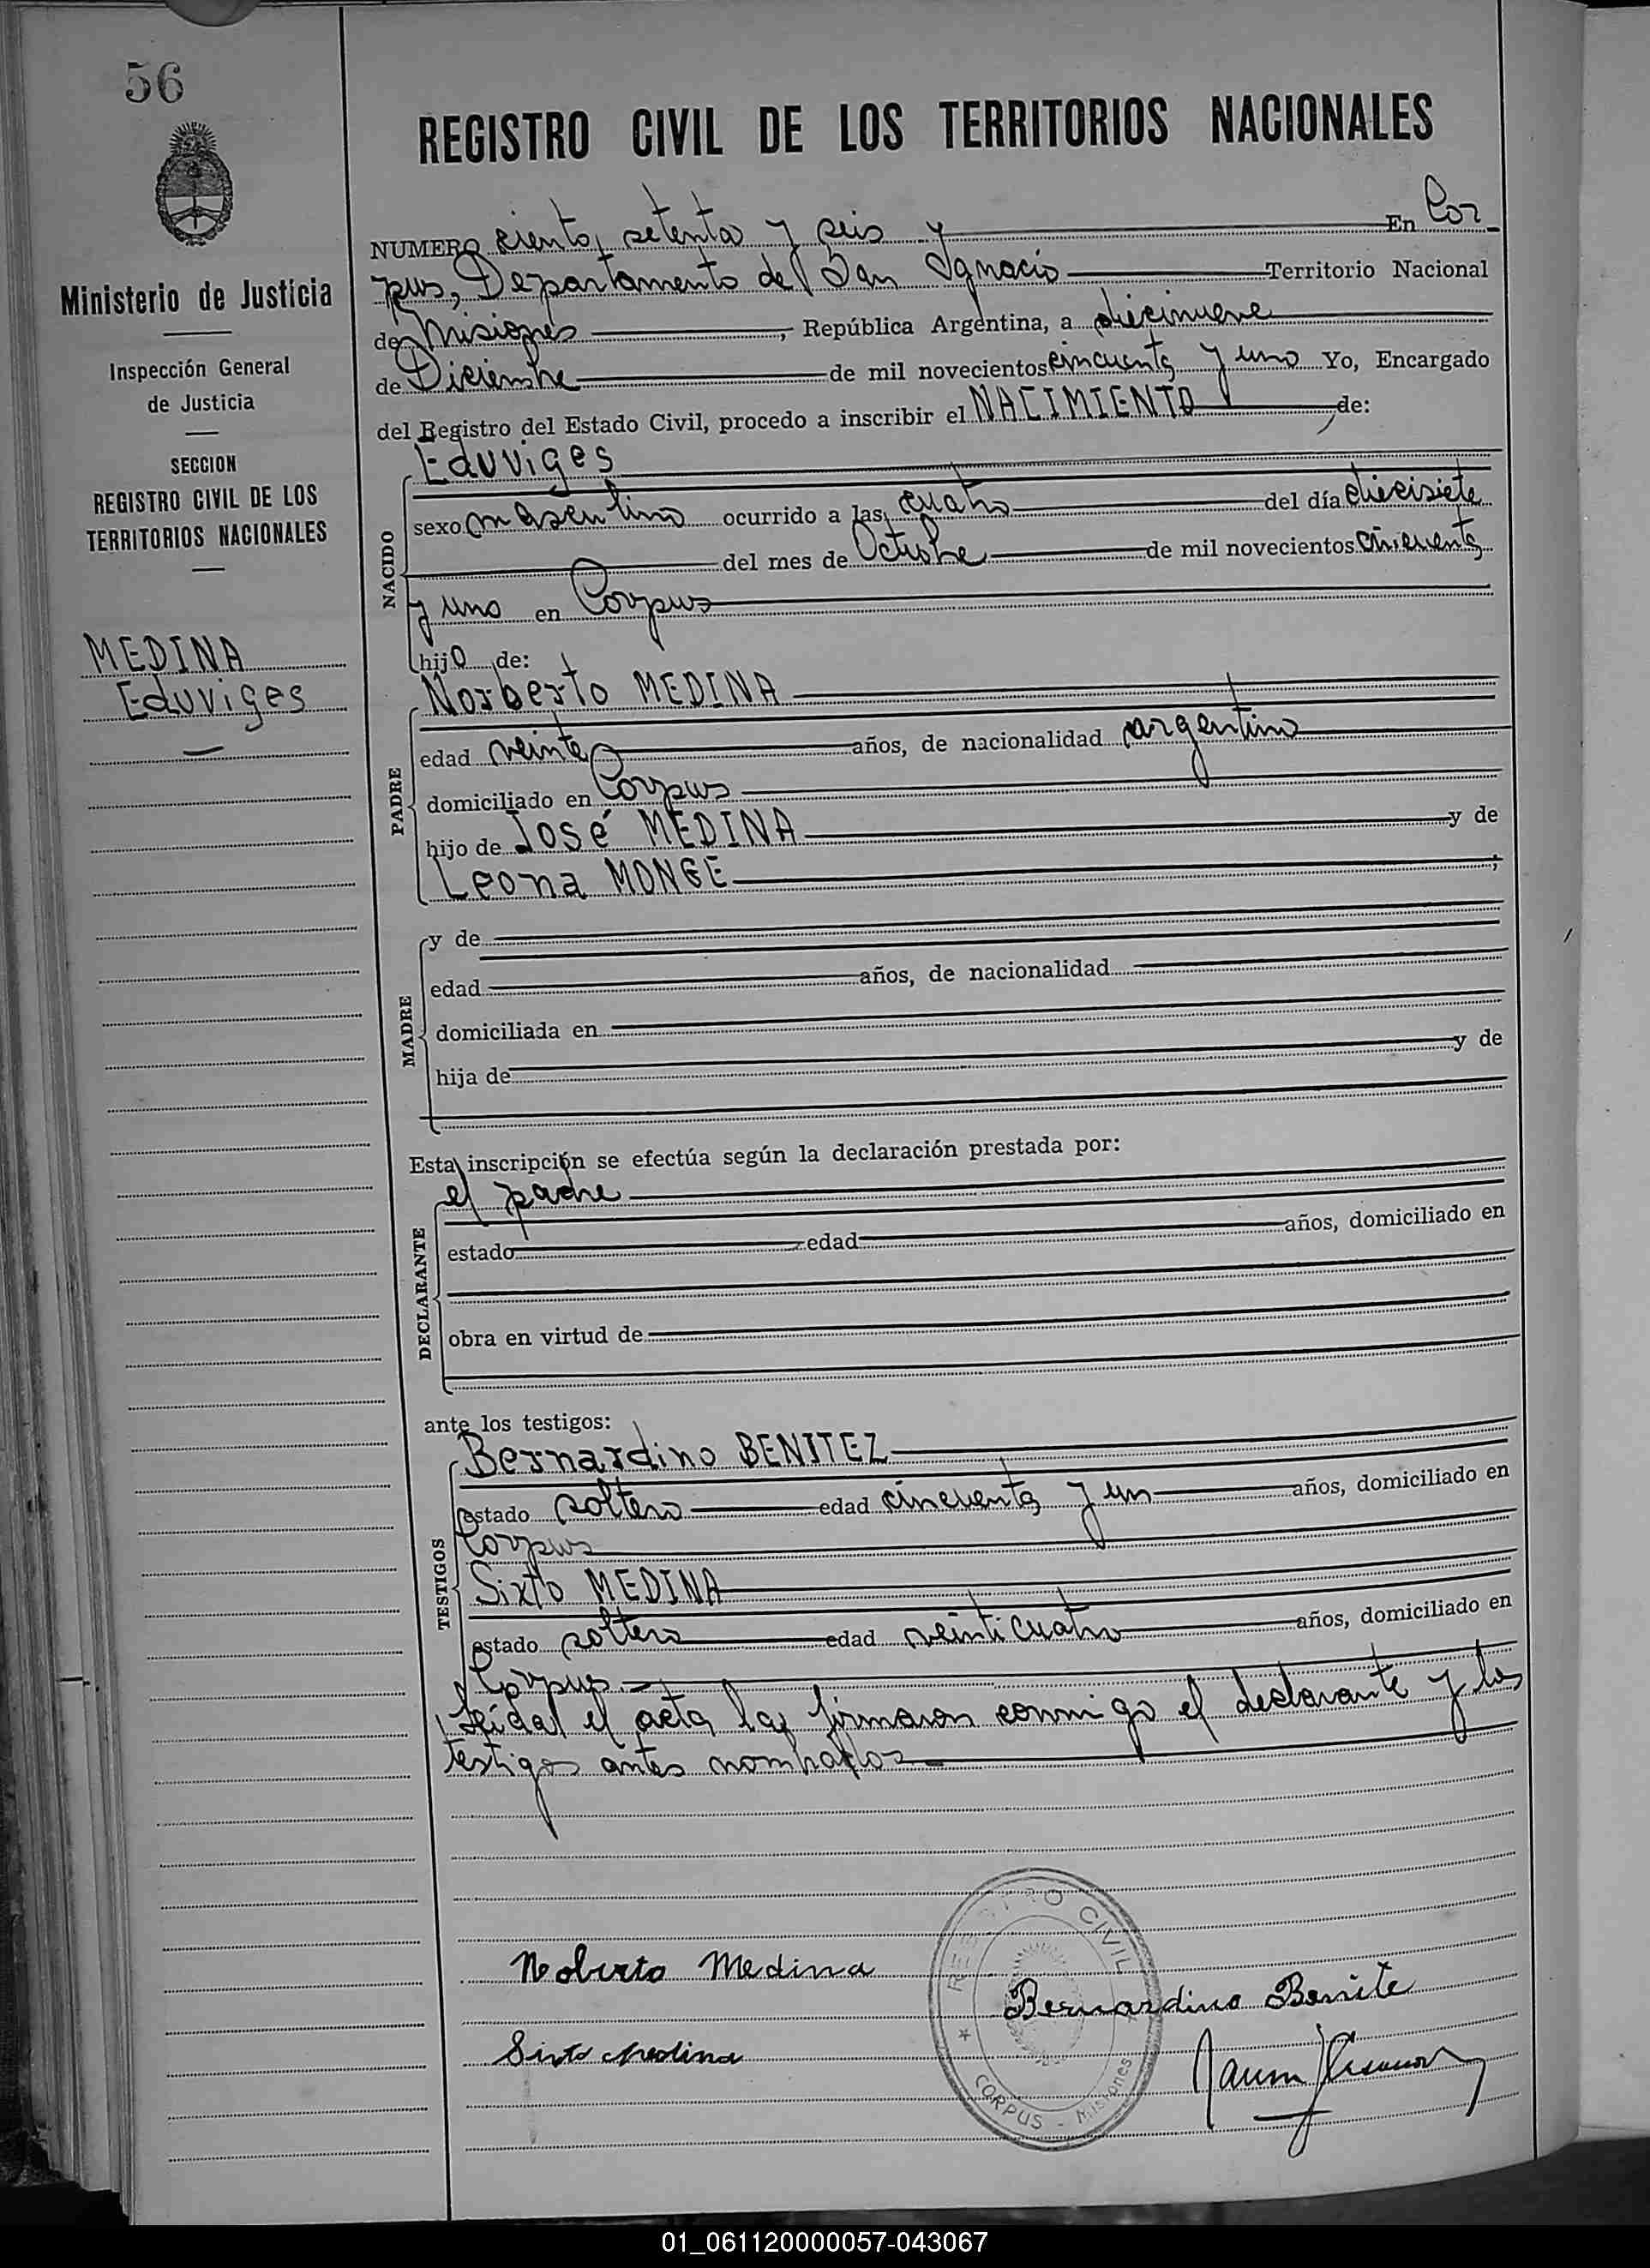 56
REGISTRO CIVIL DE LOS TERRITORIOS NACIONALES
Ministerio de Justicia
Inspección General
de Justicia
SECCION
REGISTRO CIVIL DE LOS
TERRITORIOS NACIONALES
MEDINA
Eduviges
NUMERO ciento setenta y seis y En Cor
pus, Departamento de San Ignacio Territorio Nacional
de Misiones, República Argentina, a diecinueve
de Diciembre de mil novecientos cincuenta y uno Yo, Encargado
del Registro del Estado Civil, procedo a inscribir el NACIMIENTO de:
NACIDO
Eduviges
sexo masculino ocurrido a las cuatro del día diecisiete
del mes de Octubre de mil novecientos cincuenta
y uno en Corpus
hijo de:
PADRE
Norberto MEDINA
edad veinte años, de nacionalidad argentino
domiciliado en Corpus
hijo de José MEDINA y de
Leona MONGE ;
MADRE
y de
edad años, de nacionalidad
domiciliada en
hija de y de
Esta inscripción se efectúa según la declaración prestada por:
DECLARANTE
el padre
estado edad años, domiciliado en
obra en virtud de
ante los testigos:
TESTIGOS
Bernardino BENITEZ
estado soltero edad cincuenta y un años, domiciliado en
Corpus
Sixto MEDINA
estado soltero edad veinticuatro años, domiciliado en
Corpus.
Leída el acta la firmaron conmigo el declarante y los
testigos antes nombrados
REGISTRO CIVIL
CORPUS - Misiones
Noberto Medina
Bernardino Benite
Sixto Medina
01_061120000057-043067